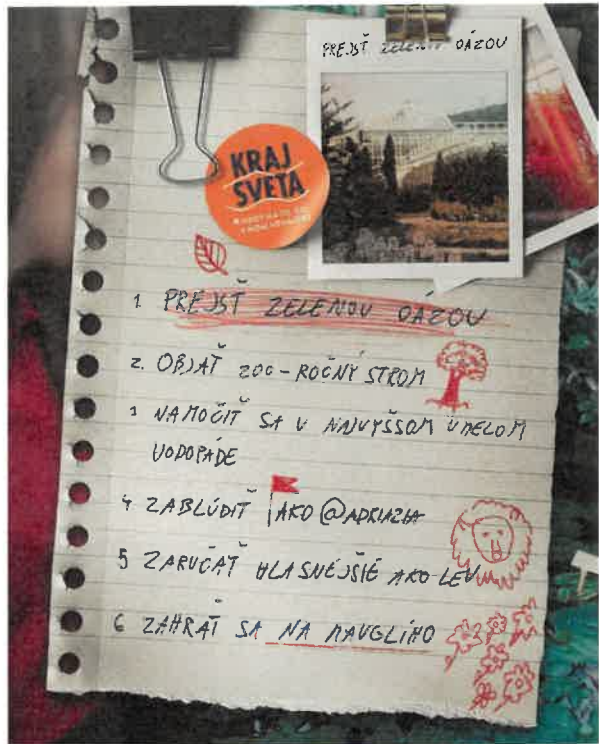 PREJSŤ ZELENOU OÁZOU
KRAJ
SVETA
1. PREJSŤ ZELENOU OÁZOU
2. OBJAŤ 200-ROČNÝ STROM
3 NAMOČIŤ SA V NAJVYŠŠOM UMELOM
VODOPÁDE
4 ZABLÚDIŤ AKO
5 ZARUČAŤ HLASNEJŠIE AKO LEV
6 ZAHRAŤ SA NA MAUGLÍHO